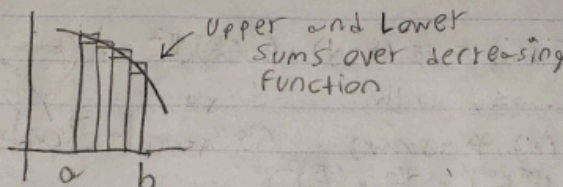 Upper and Lower
Sums over decreasing
function
a
b